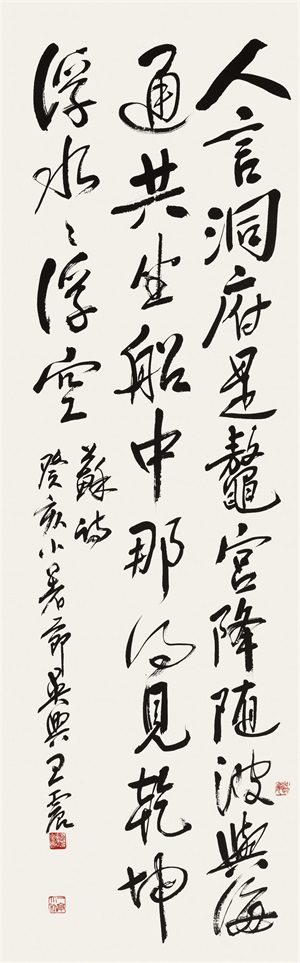 人言洞府是鼇宮降随波與海
通共坐船中那得見乾坤
浮水々浮空
蘇詩
癸亥小暑節吳興王震